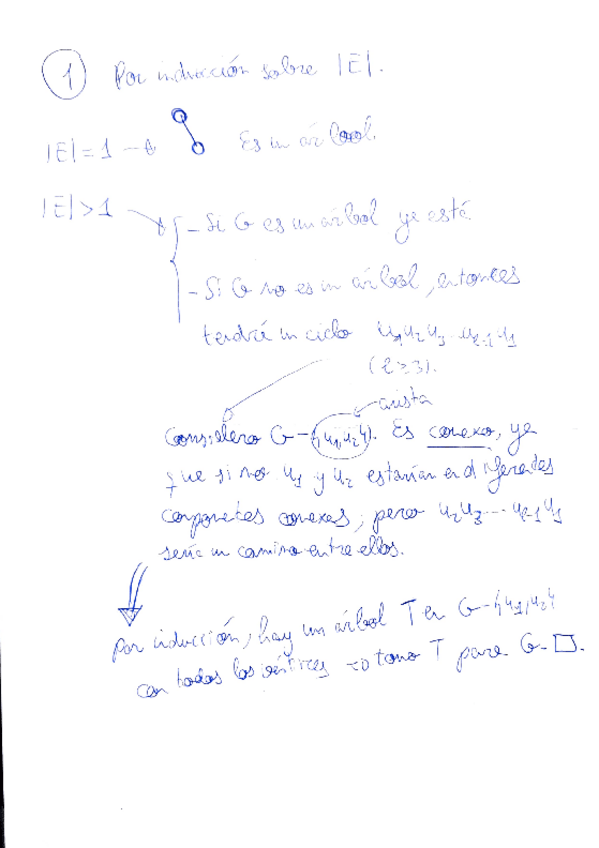 1 Por inducción sobre |E|.
|E|=1 → Es un árbol.
|E|>1 → - Si G es un árbol ya está
- Si G no es un árbol, entonces
tendrá un ciclo u₁u₂u₃...uₗ₋₁u₁
(l≥3).
arista
Considero G-{u₁,u₂}. Es conexo, ya
que si no u₁ y u₂ estarían en diferentes
componetes conexas, pero u₂u₃...uₗ₋₁u₁
sería un camino entre ellos.
Por inducción, hay un árbol T en G-{u₁,u₂}
con todos los vértices → tomo T para G. □.